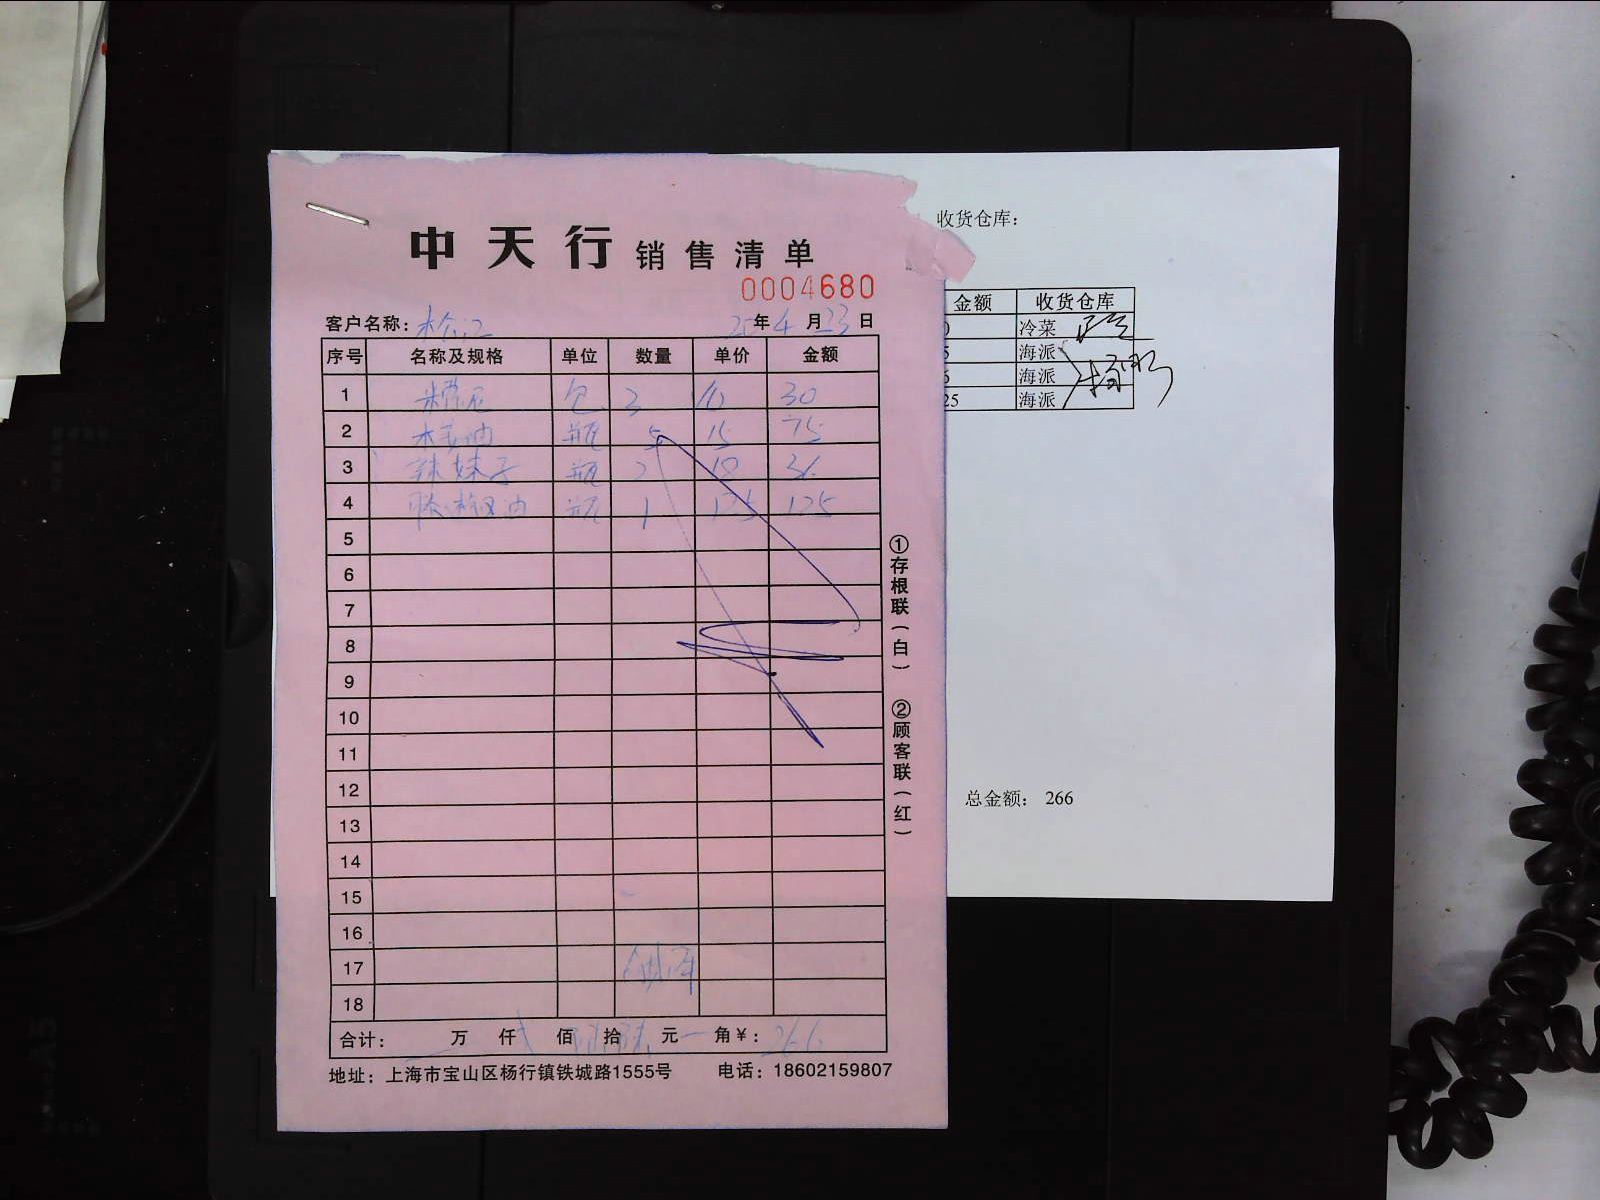 中天行 销售清单
0004680
客户名称： 年 4 月 23 日
序号 名称及规格 单位 数量 单价 金额
1 包 3 10 30
2 木姜油 瓶 5 15 75
3 辣妹子 瓶 2 18 36
4 藤椒油 瓶 1 125 125
5
6
7
8
9
10
11
12
13
14
15
16
17
18
合计： 万 仟 佰 拾 元 角 ¥： 266
地址：上海市宝山区杨行镇铁城路1555号 电话：18602159807
①存根联（白） ②顾客联（红）
收货仓库：
金额 收货仓库
冷菜
海派
海派
25 海派
总金额： 266